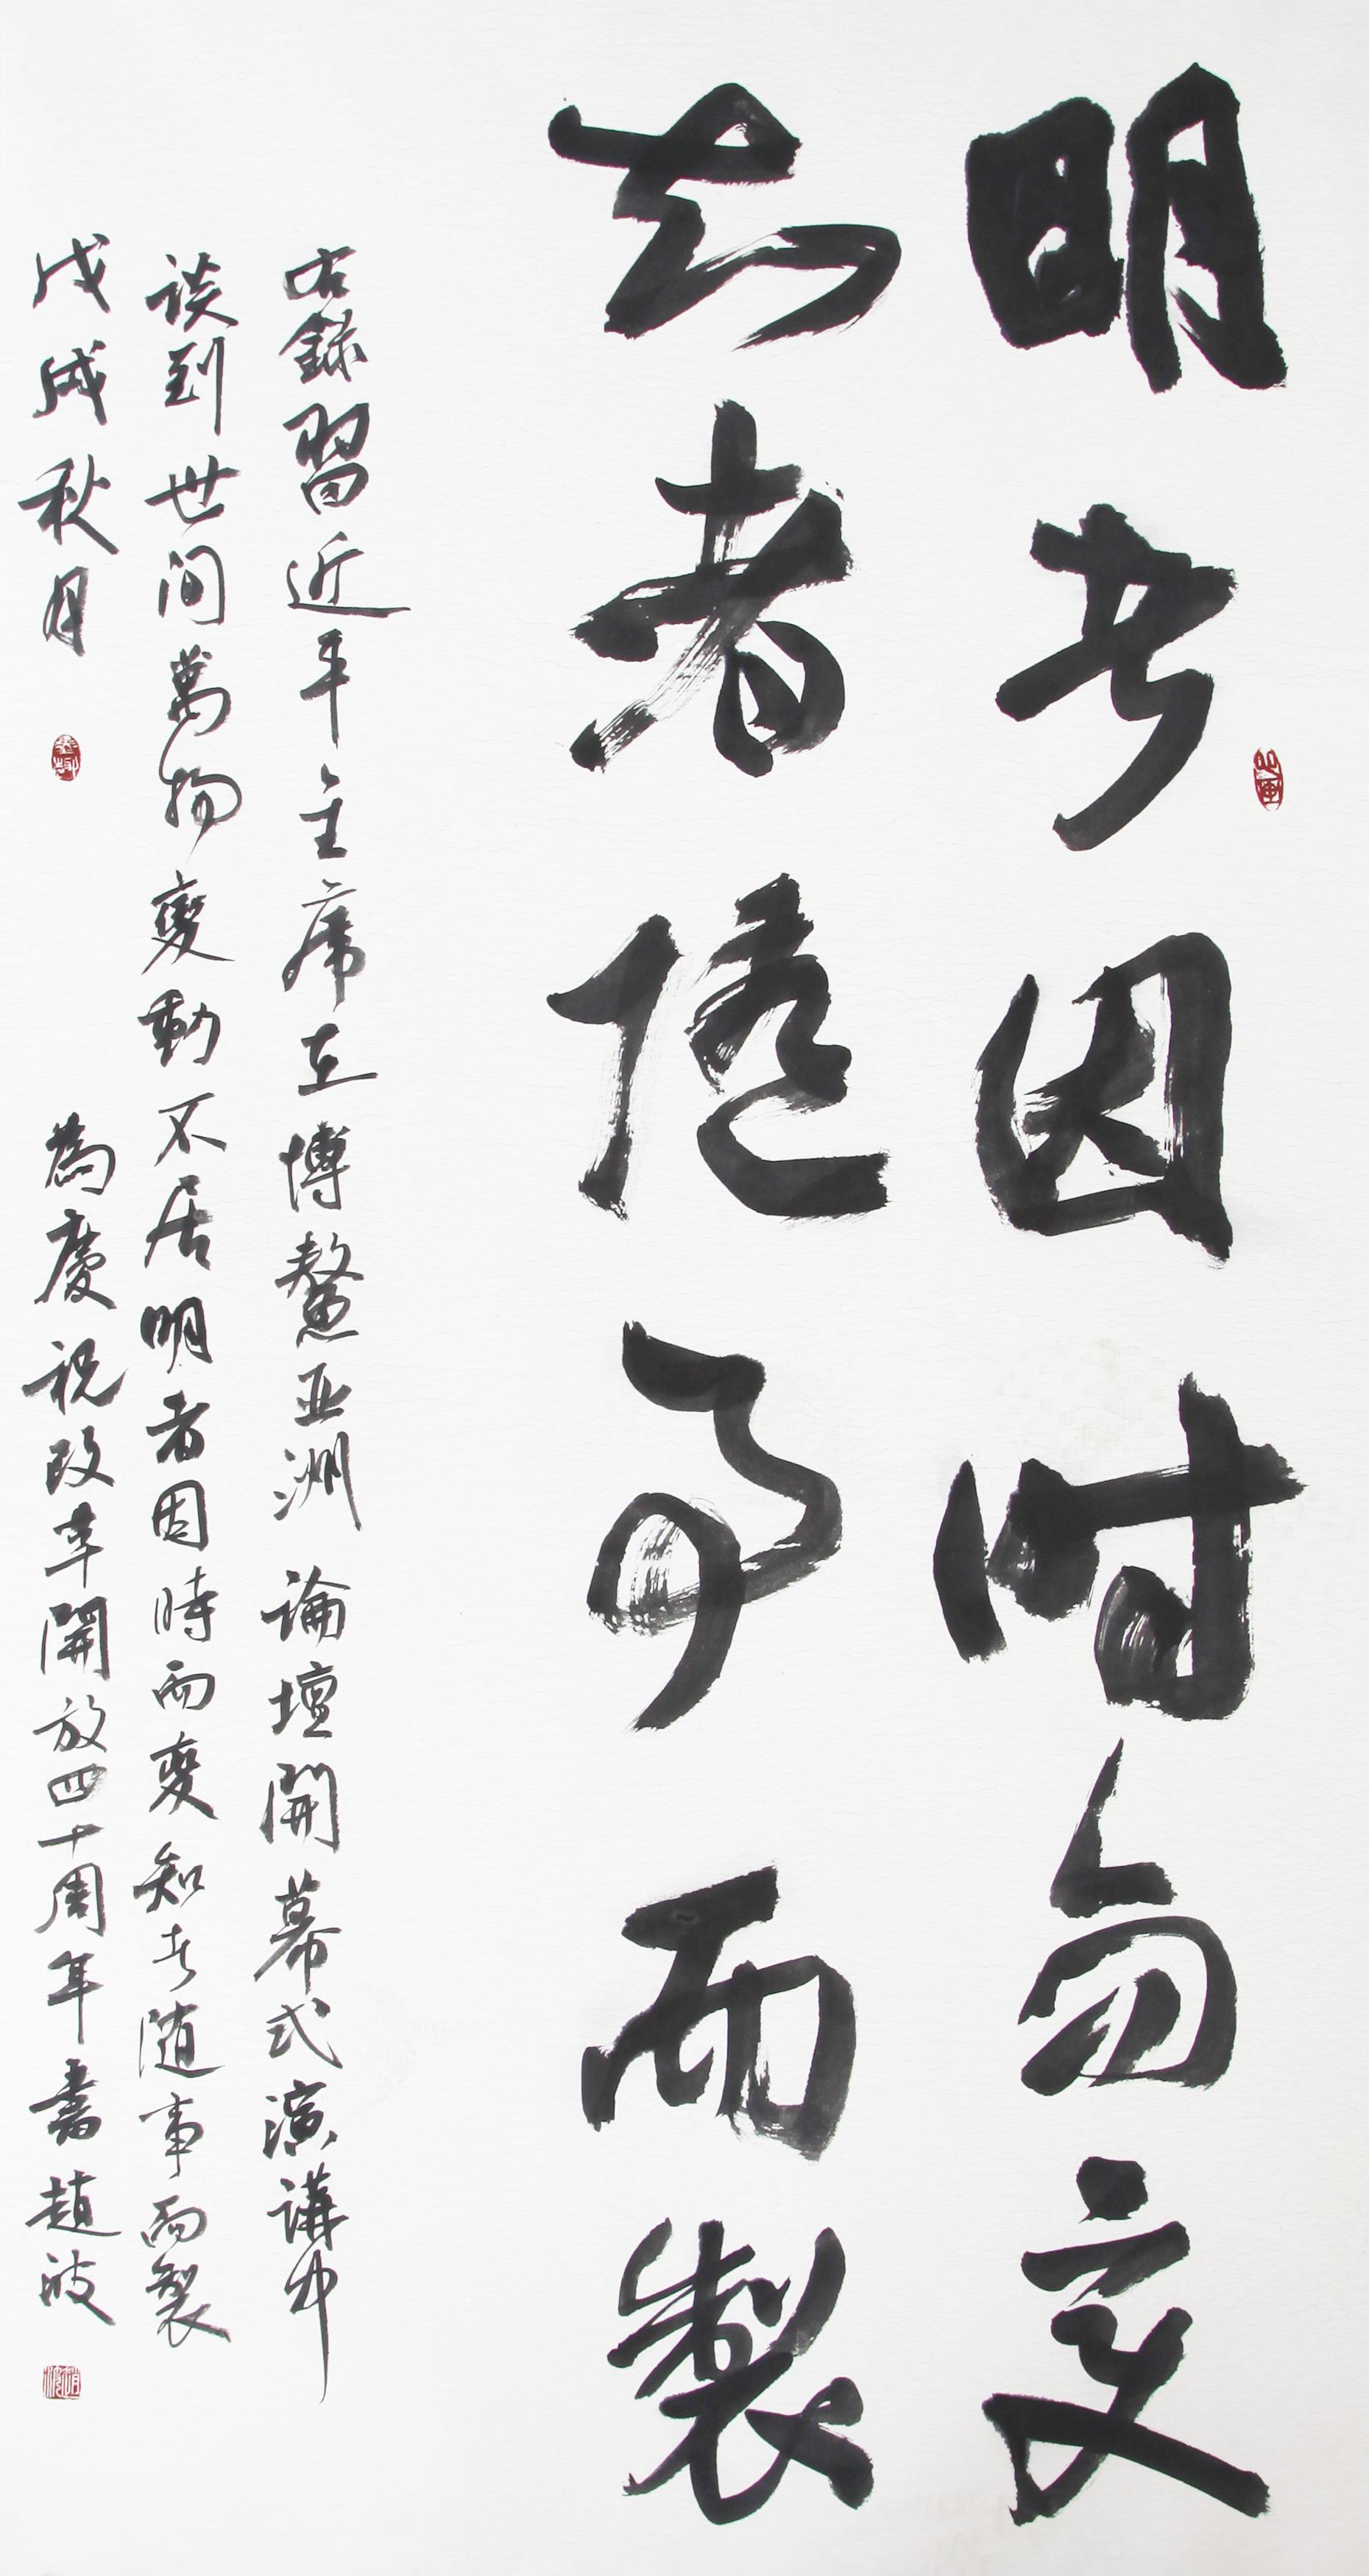 明者因時而变
知者随事而製
右録習近平主席在博鳌亚洲論壇開幕式演講中
談到世间萬物變動不居明者因時而變知者随事而製
戊戌秋月 為慶祝改革開放四十周年書趙波